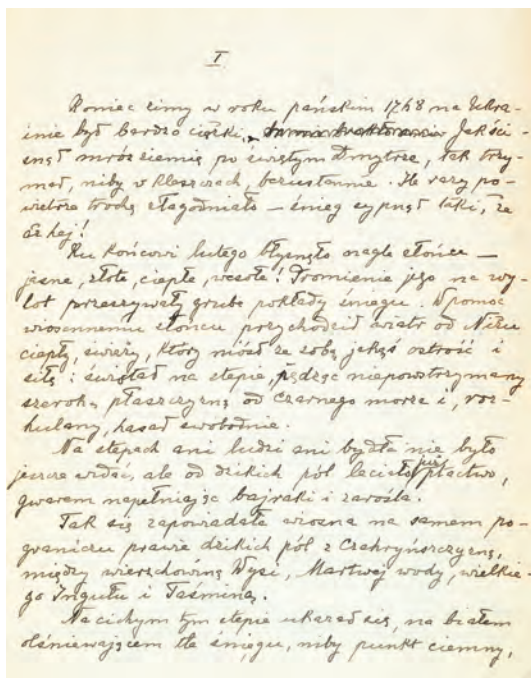 I
Koniec zimy w roku pańskim 1768 na Ukra-
inie był bardzo ciężki. Jak ści-
snął mróz ziemię po świętym Dmytrze, tak trzy-
mał, niby w kleszczach, bezustannie. Ile razy po-
wietrze trochę złagodniało — śnieg sypnął taki, że
aż hej!
Ku końcowi lutego błysnęło nagle słońce —
jasne, złote, ciepłe, wesołe! Promienie jego na wy-
lot przeszywały grube pokłady śniegu. W pomoc
wiosennemu słońcu przychodził wiatr od Niżu
ciepły, świeży, który niósł ze sobą jakąś ostrość i
siłę; świstał na stepie, pędząc niepowstrzymany
szeroką płaszczyzną od Czarnego morza i, roz-
hulany, hasał swobodnie.
Na stepach ani ludzi ani bydła nie było
jeszcze widać, ale od dzikich pól leciało już ptactwo,
gwarem napełniając bajraki i zarośla.
Tak się zapowiadała wiosna na samem po-
graniczu prawie dzikich pól z Czehryńszczyzną,
między wierzchowiną Wysi, Martwej wody, wielkie-
go Ingułu i Taśminą.
Na cichym tym stepie ukazał się, na białem
olśniewającem tle śniegu, niby punkt ciemny,